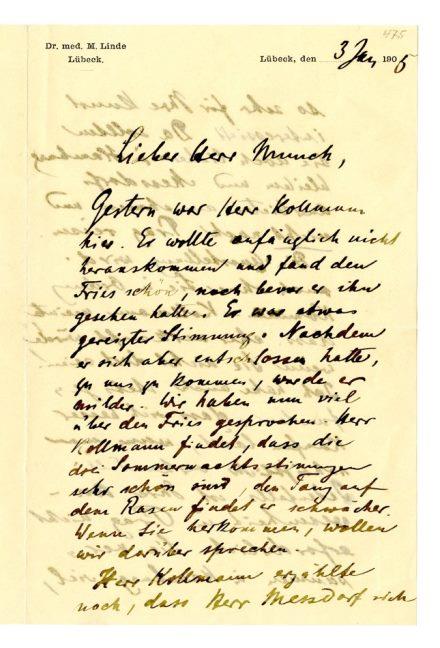 475
Dr. med. M. Linde
Lübeck.
Lübeck, den 3 Jan 1905
Lieber Herr Munch,
Gestern war Herr Kollmann
hier. Er wollte anfänglich nicht
herauskommen und fand den
Fries schön, noch bevor er ihn
gesehen hatte. Er war etwas
gereizter Stimmung. Nachdem
er sich aber entschlossen hatte,
zu uns zu kommen, wurde er
milder. Wir haben nun viel
über den Fries gesprochen. Herr
Kollmann findet, dass die
drei Sommernachtsstimmungen
sehr schön sind, den Tanz auf
dem Rasen findet er schwächer.
Wenn Sie herkommen, wollen
wir darüber sprechen.
Herr Kollmann erzählte
noch, dass Herr Messdorf sich